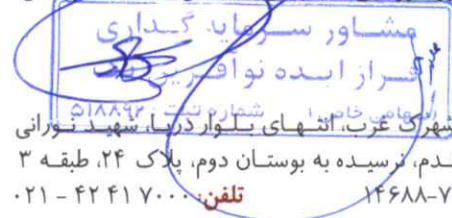 مشاور سرمایه گذاری
فراز ایده نوآفرین تک
(سهامی خاص) شماره ثبت: ۵۱۸۸۹۲
شهرک غرب، انتهای بلوار دریا، شهید نورانی
نرسیده به بوستان دوم، پلاک ۲۴، طبقه ۳
تلفن: ۴۲۴۱۷۰۰۰ - ۰۲۱
۱۴۶۸۸-۷